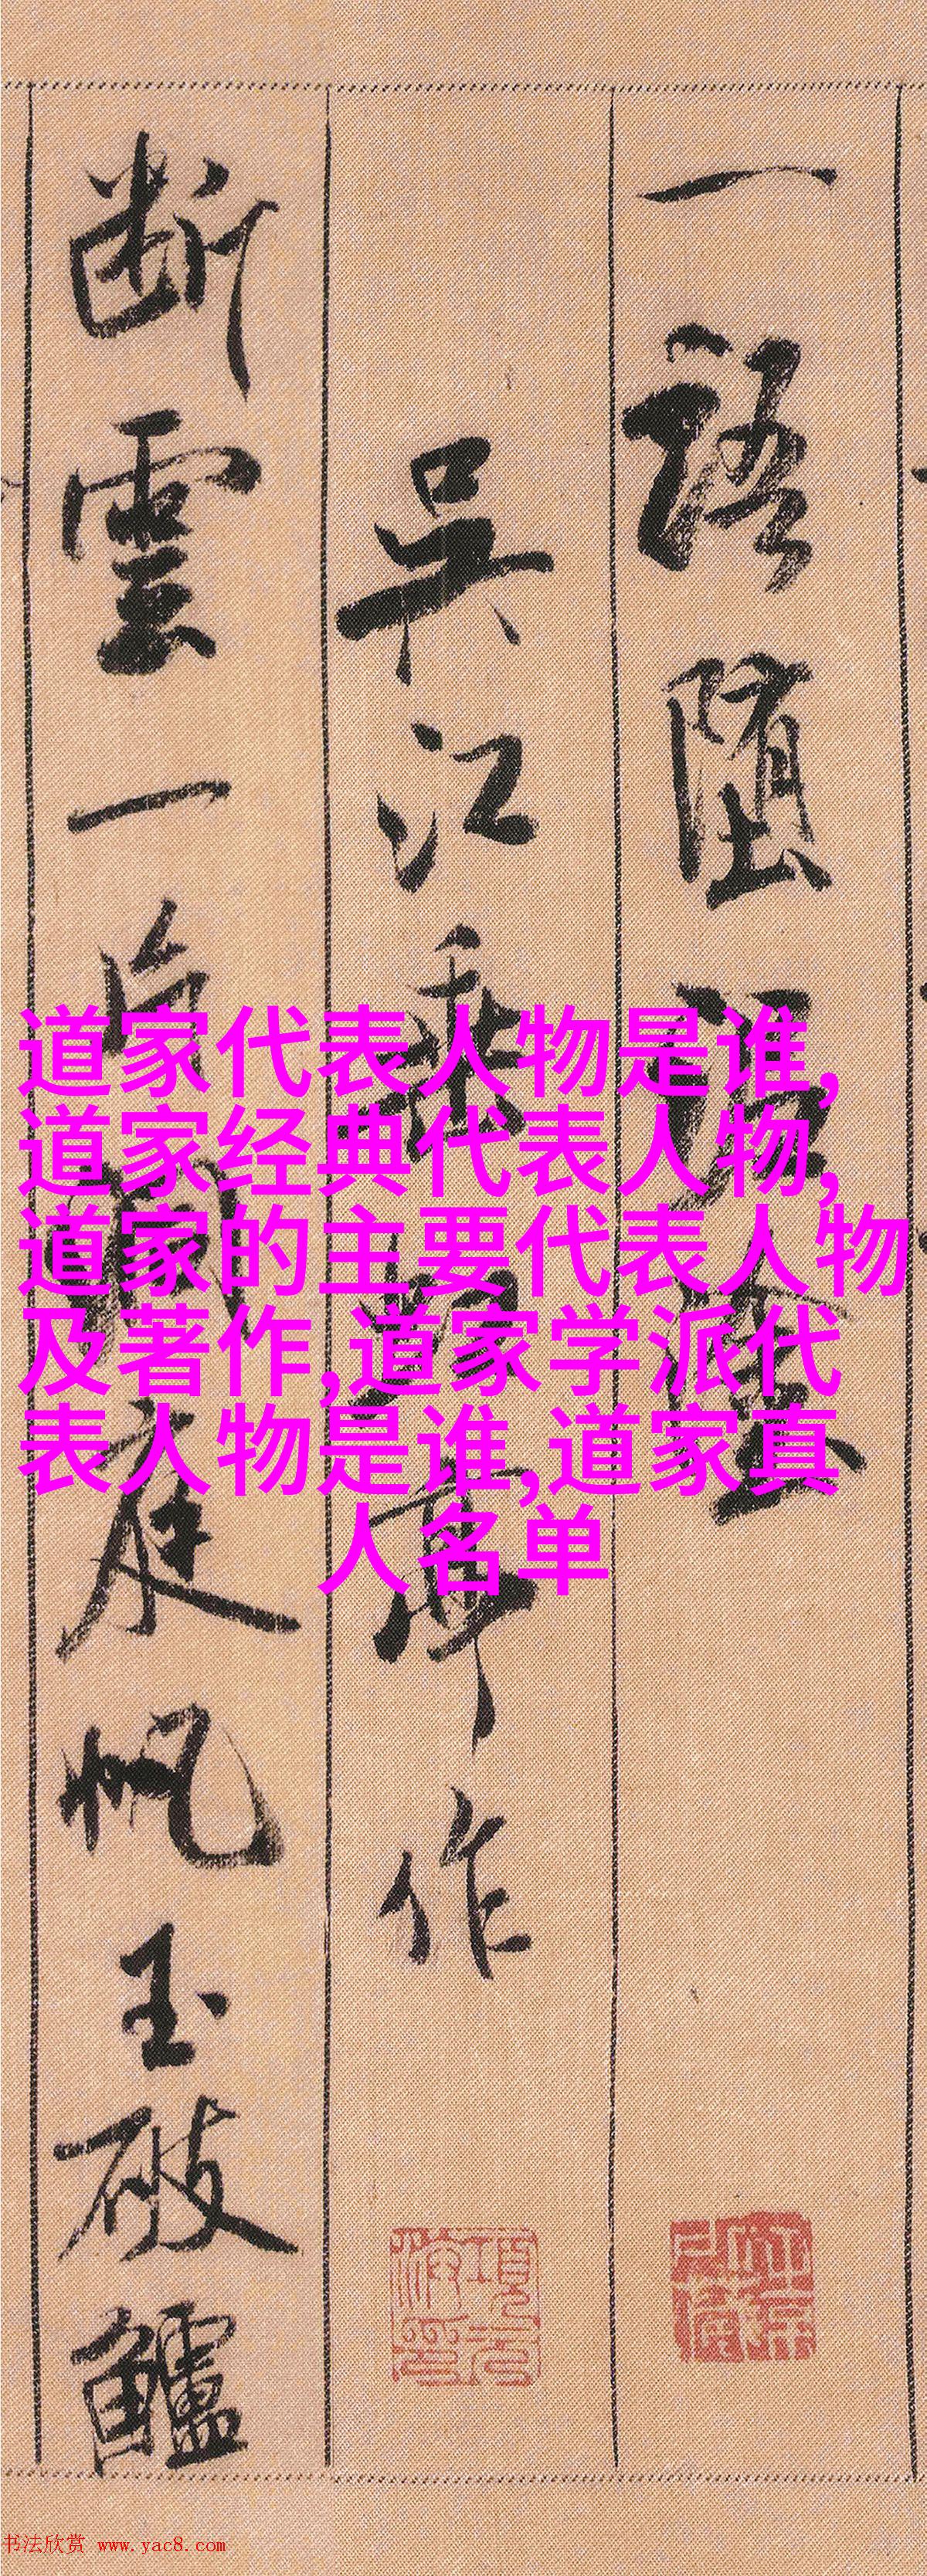 一語墮泥塗
吳江垂虹亭作
斷雲一片洞庭帆玉破鱸
道家代表人物是谁,
道家经典代表人物,
道家的主要代表人物
及著作,道家学派代
表人物是谁,道家真
人名单
书法欣赏 www.yac8.com